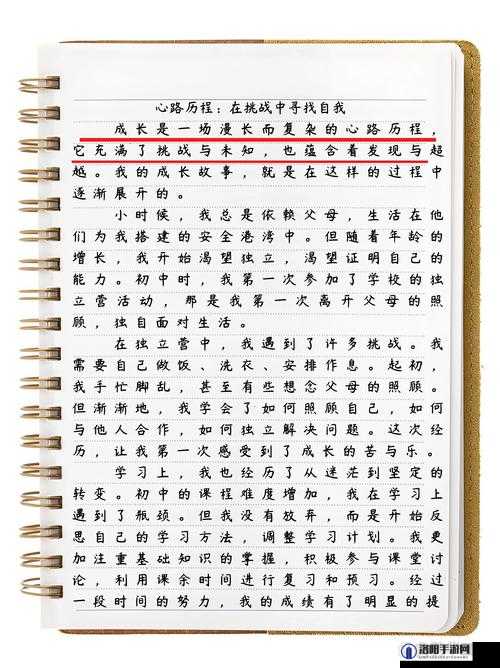 心路历程：在挑战中寻找自我
成长是一场漫长而复杂的心路历程，
它充满了挑战与未知，也蕴含着发现与超
越。我的成长故事，就是在这样的过程中
逐渐展开的。
小时候，我总是依赖父母，生活在他
们为我搭建的安全港湾中。但随着年龄的
增长，我开始渴望独立，渴望证明自己的
能力。初中时，我第一次参加了学校的独
立营活动，那是我第一次离开父母的照
顾，独自面对生活。
在独立营中，我遇到了许多挑战。我
需要自己做饭、洗衣、安排作息。起初，
我手忙脚乱，甚至有些想念父母的照顾。
但渐渐地，我学会了如何照顾自己，如何
与他人合作，如何独立解决问题。这次经
历，让我第一次感受到了成长的苦与乐。
学习上，我也经历了从迷茫到坚定的
转变。初中的课程难度增加，我在学习上
遇到了瓶颈。但我没有放弃，而是开始反
思自己的学习方法，调整学习计划。我更
加注重基础知识的掌握，积极参与课堂讨
论，利用课余时间进行复习和预习。经过
一段时间的努力，我的成绩有了明显的提
洛阳手游网